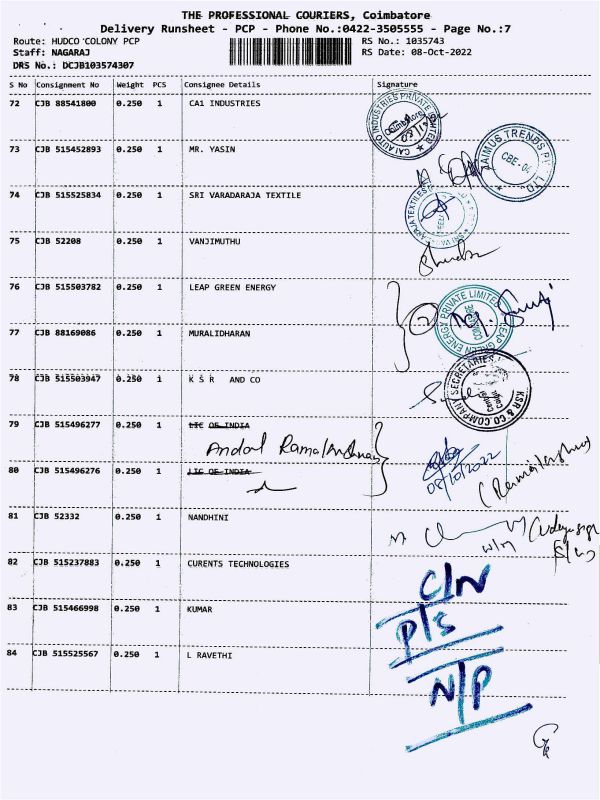 THE PROFESSIONAL COURIERS, Coimbatore
Delivery Runsheet - PCP - Phone No.:0422-3505555 - Page No.:7
Route: HUDCO COLONY PCP
RS No.: 1035743
Staff: NAGARAJ
RS Date: 08-Oct-2022
DRS No.: DCJB103574307
S No Consignment No Weight PCS Consignee Details Signature
72 CJB 88541800 0.250 1 CA1 INDUSTRIES
73 CJB 515452893 0.250 1 MR. YASIN
74 CJB 515525834 0.250 1 SRI VARADARAJA TEXTILE
75 CJB 52208 0.250 1 VANJIMUTHU
76 CJB 515503782 0.250 1 LEAP GREEN ENERGY
77 CJB 88169086 0.250 1 MURALIDHARAN
78 CJB 515503947 0.250 1 K S R AND CO
79 CJB 515496277 0.250 1 LIC OF INDIA
80 CJB 515496276 0.250 1 LIC OF INDIA
81 CJB 52332 0.250 1 NANDHINI
82 CJB 515237883 0.250 1 CURENTS TECHNOLOGIES
83 CJB 515466998 0.250 1 KUMAR
84 CJB 515525567 0.250 1 L RAVETHI
CAI AUTO INDUSTRIES PRIVATE LIMITED
Coimbatore
JAIMUS TRENDS
CBE - 04
LEAP GREEN ENERGY PRIVATE LIMITED
KSR & CO COMPANY SECRETARIES
Andal
08/10/2022
C/N
P/S
N/P